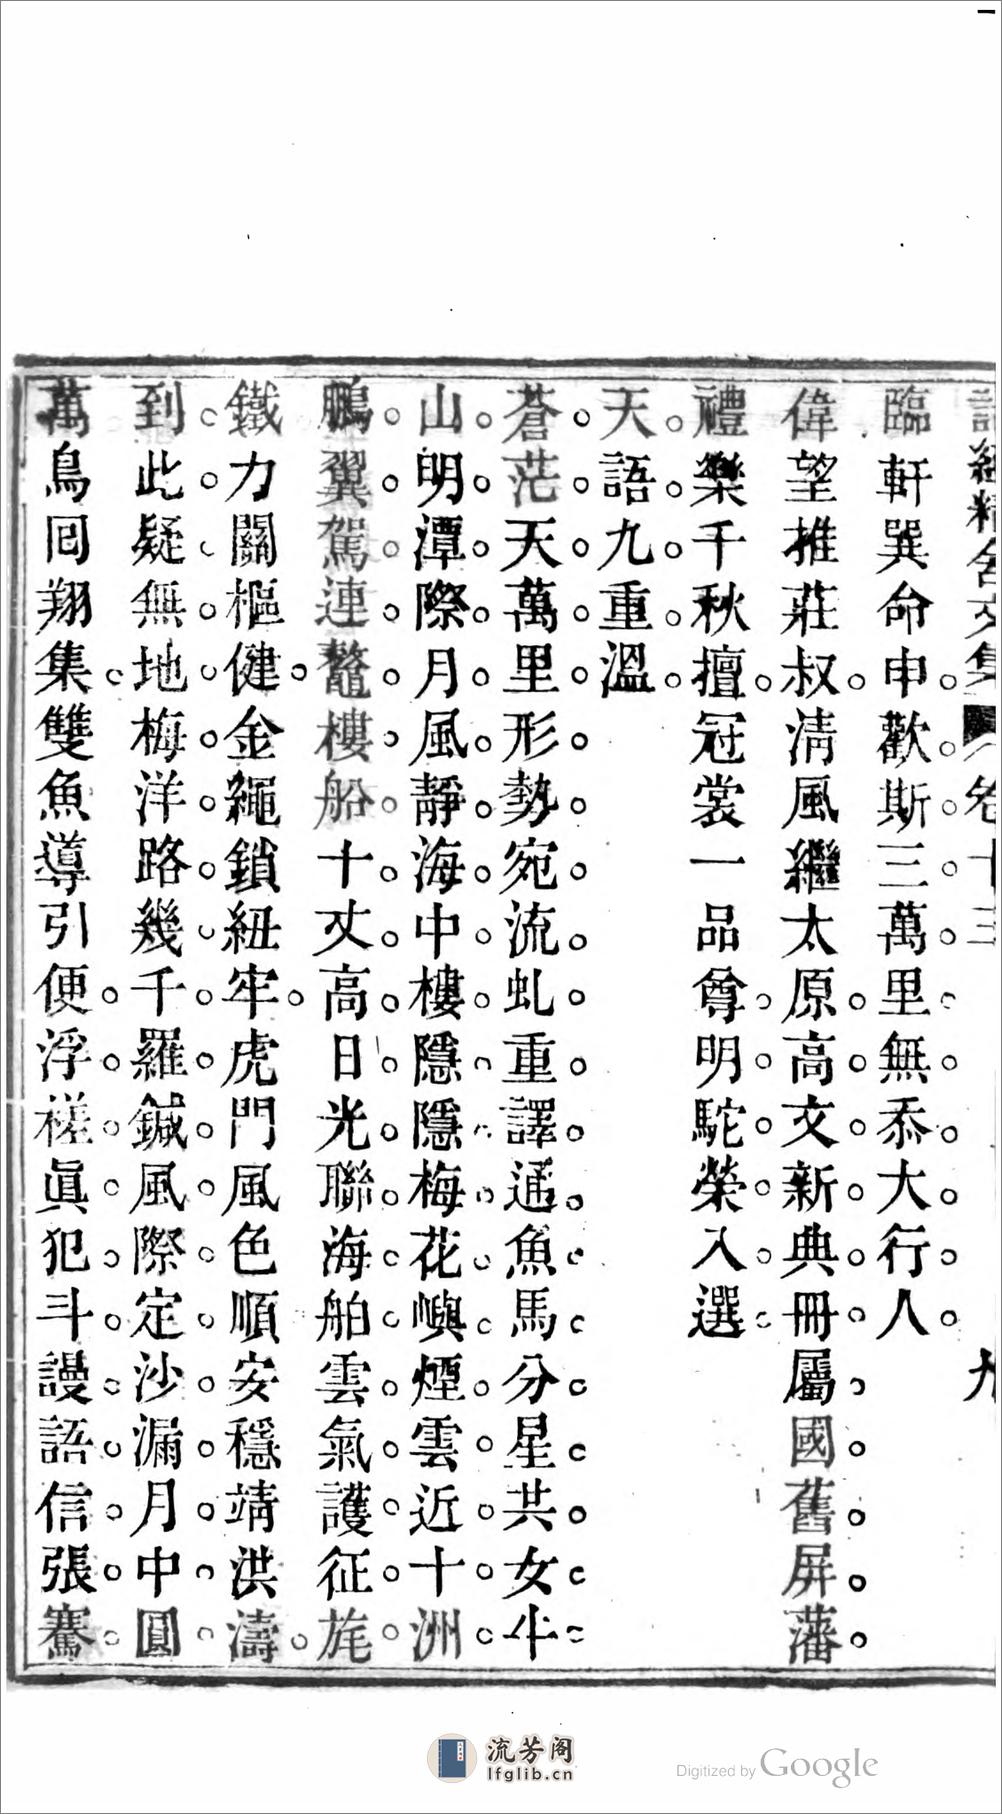 詁經精舍文集 卷十三 九
臨軒巽命申歡斯三萬里無忝大行人
偉望推莊叔清風繼太原高文新典冊屬國舊屏藩
禮樂千秋擅冠裳一品尊明駝榮入選
天語九重溫
蒼茫天萬里形勢宛流虬重譯通魚馬分星共女牛
山明潭際月風靜海中樓隱隱梅花嶼煙雲近十洲
鵬翼駕連鼇樓船十丈高日光聯海舶雲氣護征旄
鐵力關樞健金繩鎖紐牢虎門風色順安穩靖洪濤
到此疑無地梅洋路幾千羅鍼風際定沙漏月中圓
萬鳥回翔集雙魚導引便浮槎眞犯斗謾語信張騫
流芳阁
lfglib.cn
Digitized by Google